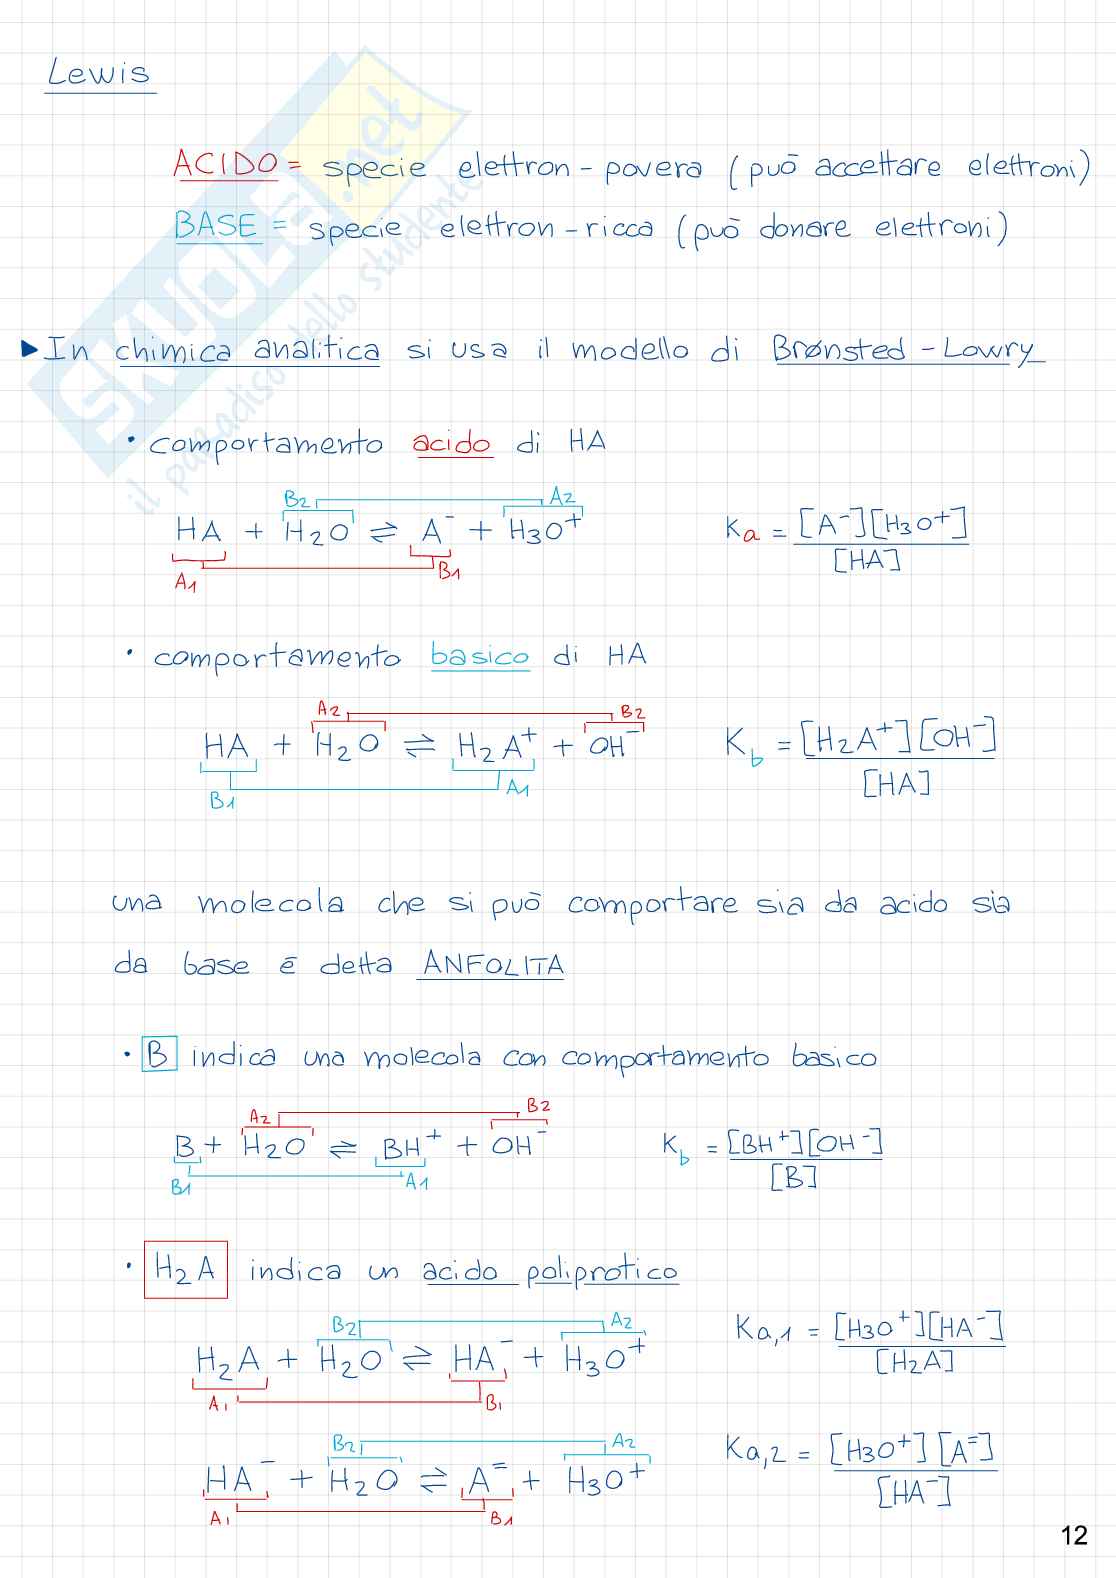 Lewis
ACIDO = specie elettron-povera (può accettare elettroni)
BASE = specie elettron-ricca (può donare elettroni)
▶ In chimica analitica si usa il modello di Brønsted-Lowry
• comportamento acido di HA
B2 A2
HA + H2O ⇌ A⁻ + H3O⁺ Ka = [A⁻][H3O⁺] / [HA]
A1 B1
• comportamento basico di HA
A2 B2
HA + H2O ⇌ H2A⁺ + OH⁻ Kb = [H2A⁺][OH⁻] / [HA]
B1 A1
una molecola che si può comportare sia da acido sia
da base è detta ANFOLITA
• B indica una molecola con comportamento basico
A2 B2
B + H2O ⇌ BH⁺ + OH⁻ Kb = [BH⁺][OH⁻] / [B]
B1 A1
• H2A indica un acido poliprotico
B2 A2
H2A + H2O ⇌ HA⁻ + H3O⁺ Ka,1 = [H3O⁺][HA⁻] / [H2A]
A1 B1
B2 A2
HA⁻ + H2O ⇌ A⁼ + H3O⁺ Ka,2 = [H3O⁺][A⁼] / [HA⁻]
A1 B1
12
SKUOLA.net
il paradiso dello studente